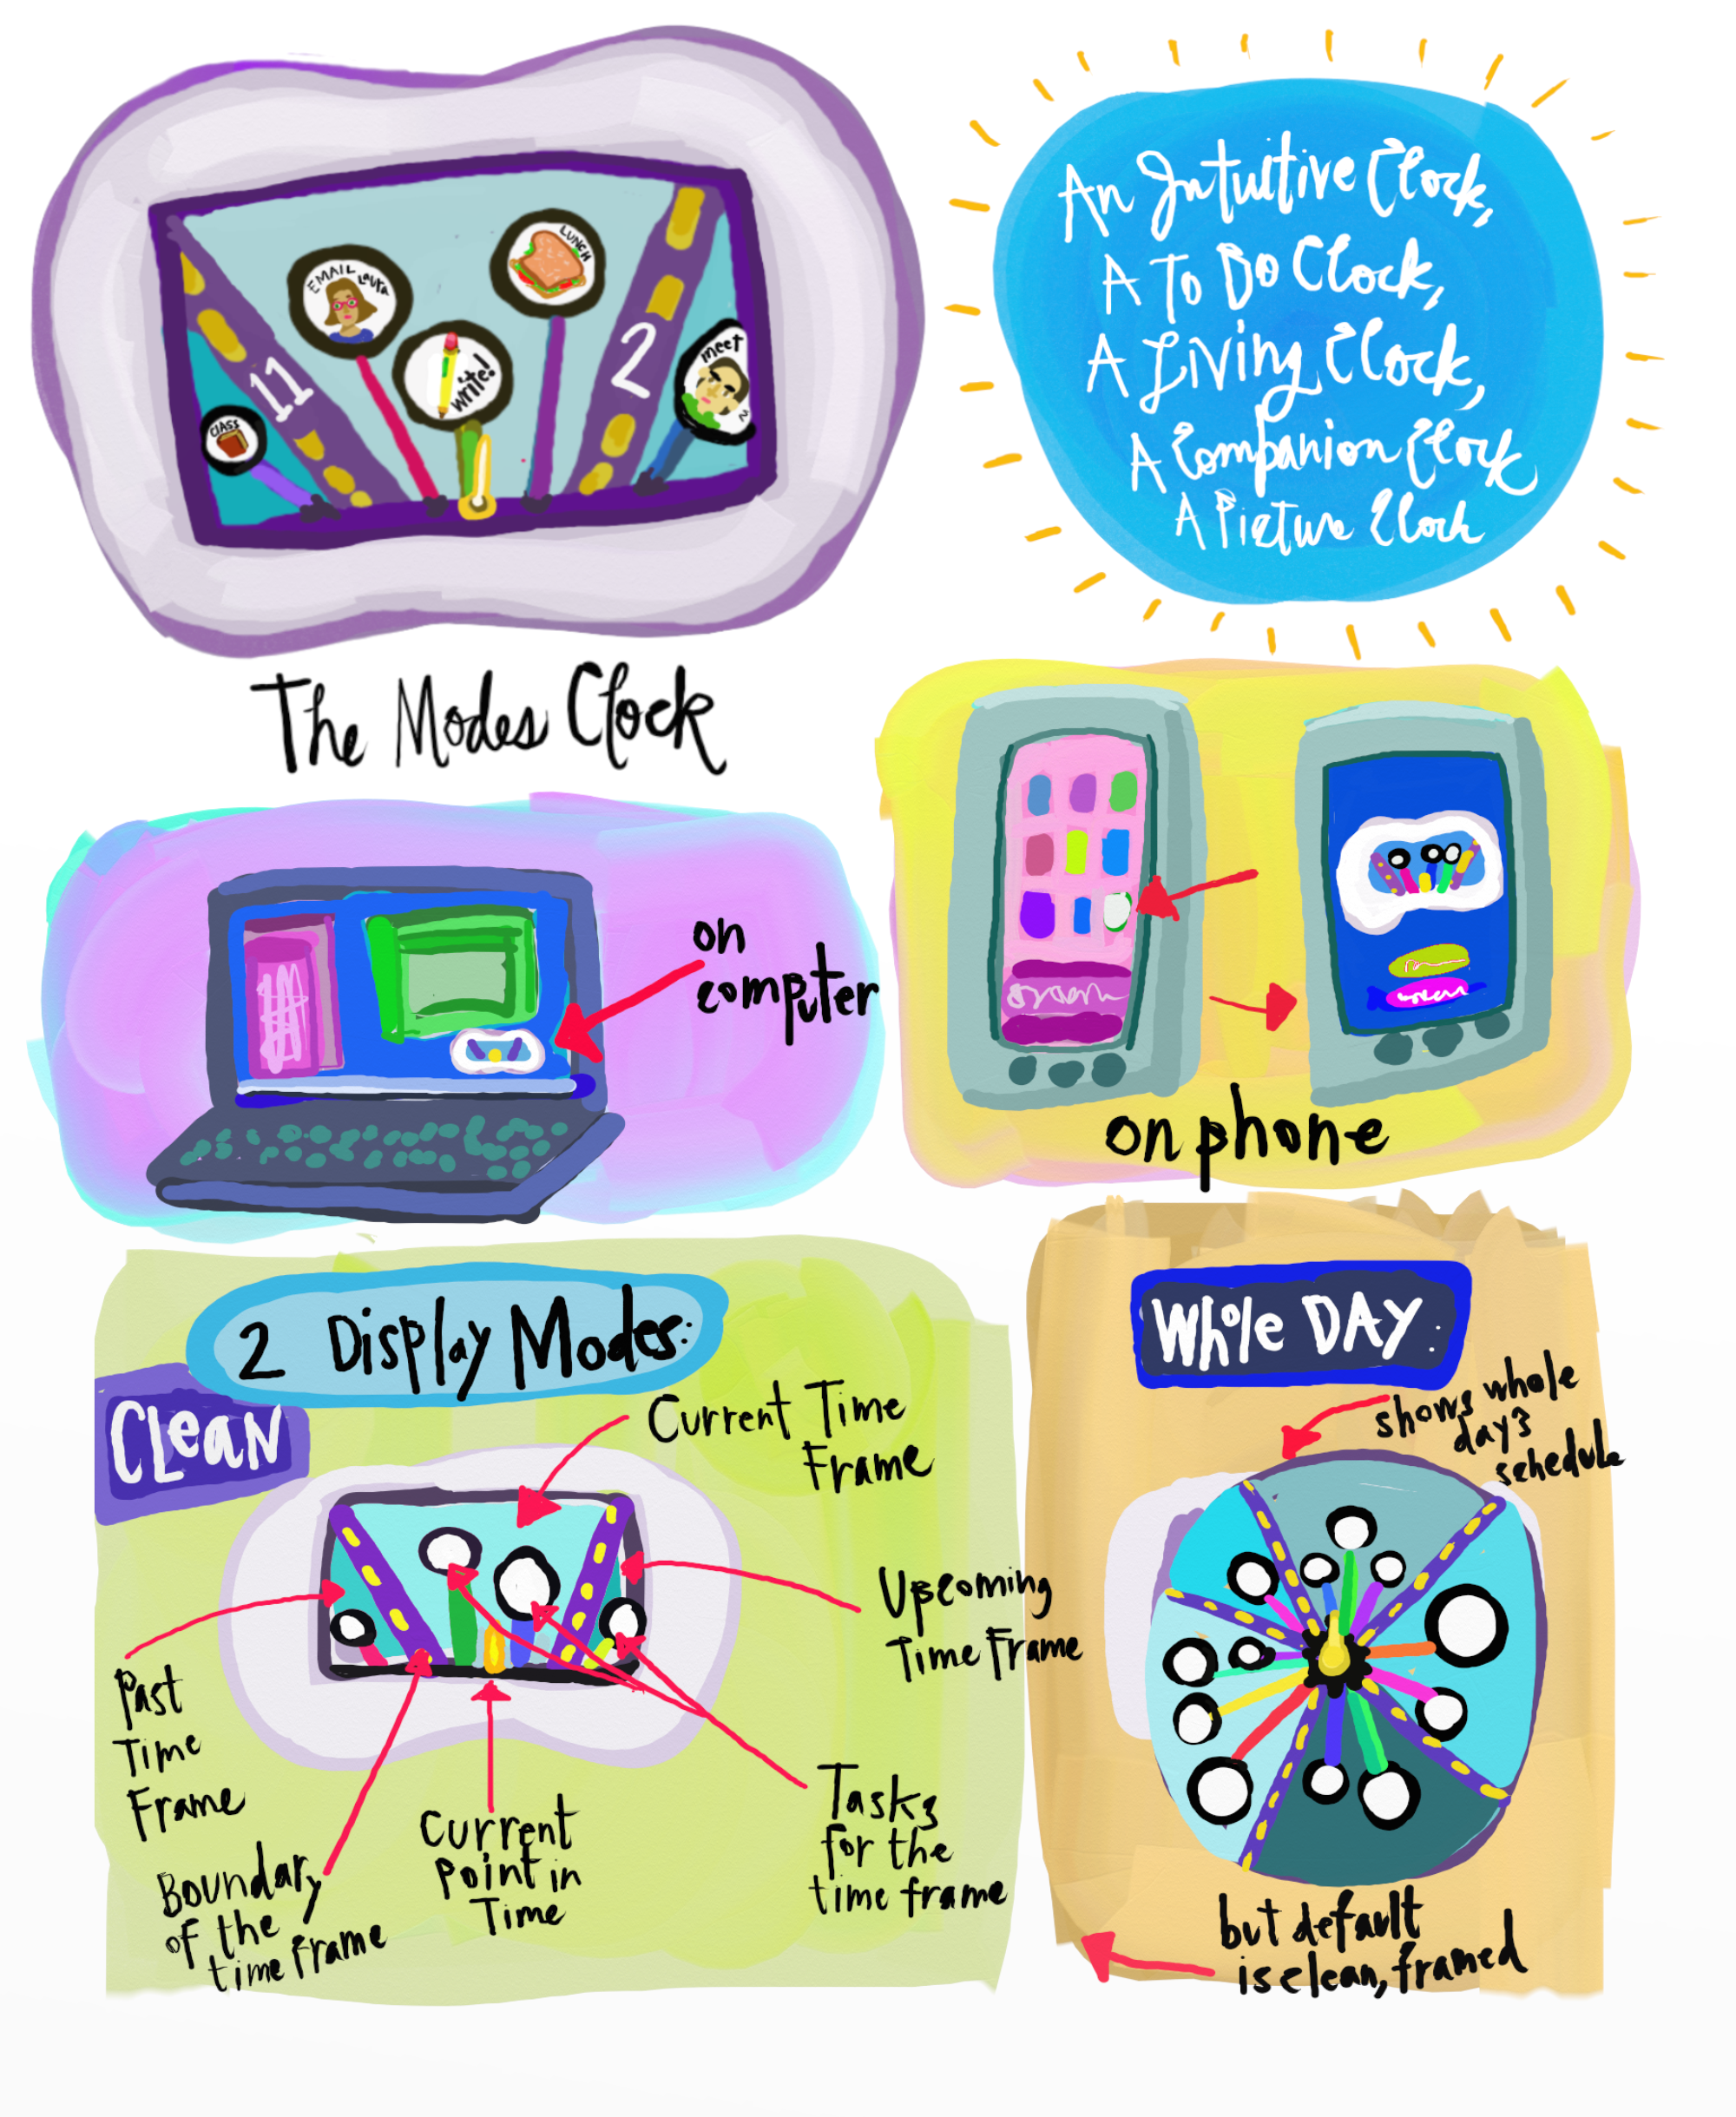 EMAIL Laura
LUNCH
write!
meet
CLASS
11
2
An Intuitive Clock,
A To Do Clock,
A Living Clock,
A Companion Clock
A Picture Clock
The Modes Clock
on
computer
on phone
2 Display Modes:
CLEAN
Current Time
Frame
Upcoming
Time Frame
Past
Time
Frame
Boundary
of the
time frame
Current
Point in
Time
Tasks
for the
time frame
Whole DAY:
shows whole
days
schedule
but default
is clean, framed